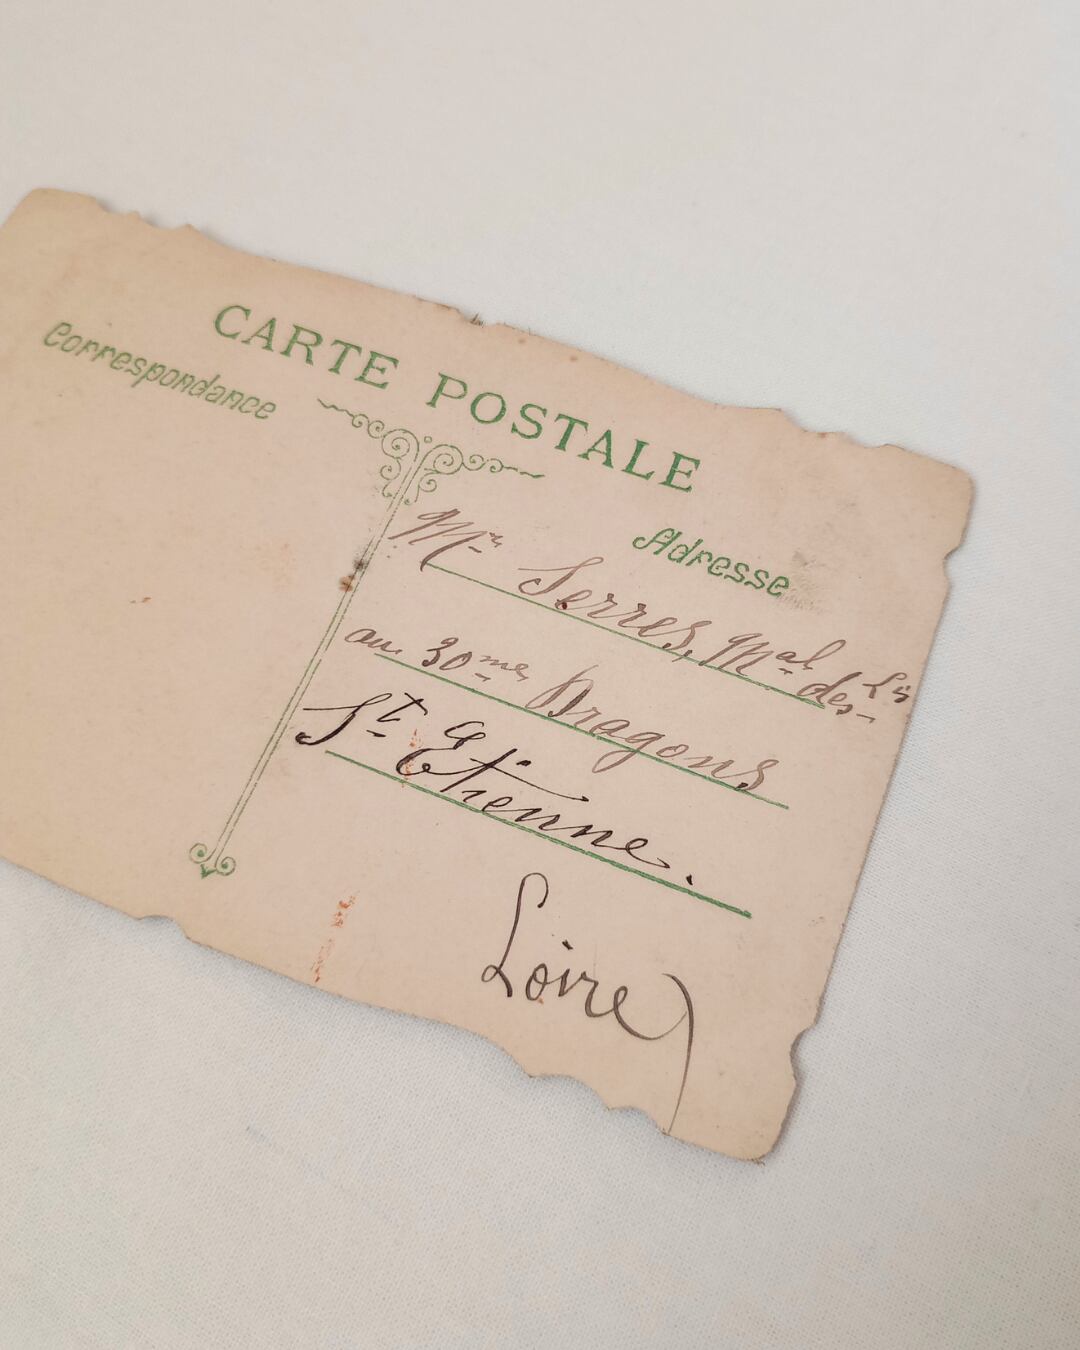 CARTE POSTALE
Correspondance
Adresse
Mr Serres, Mal des Lis
au 30me Dragons
St Etienne.
Loire)